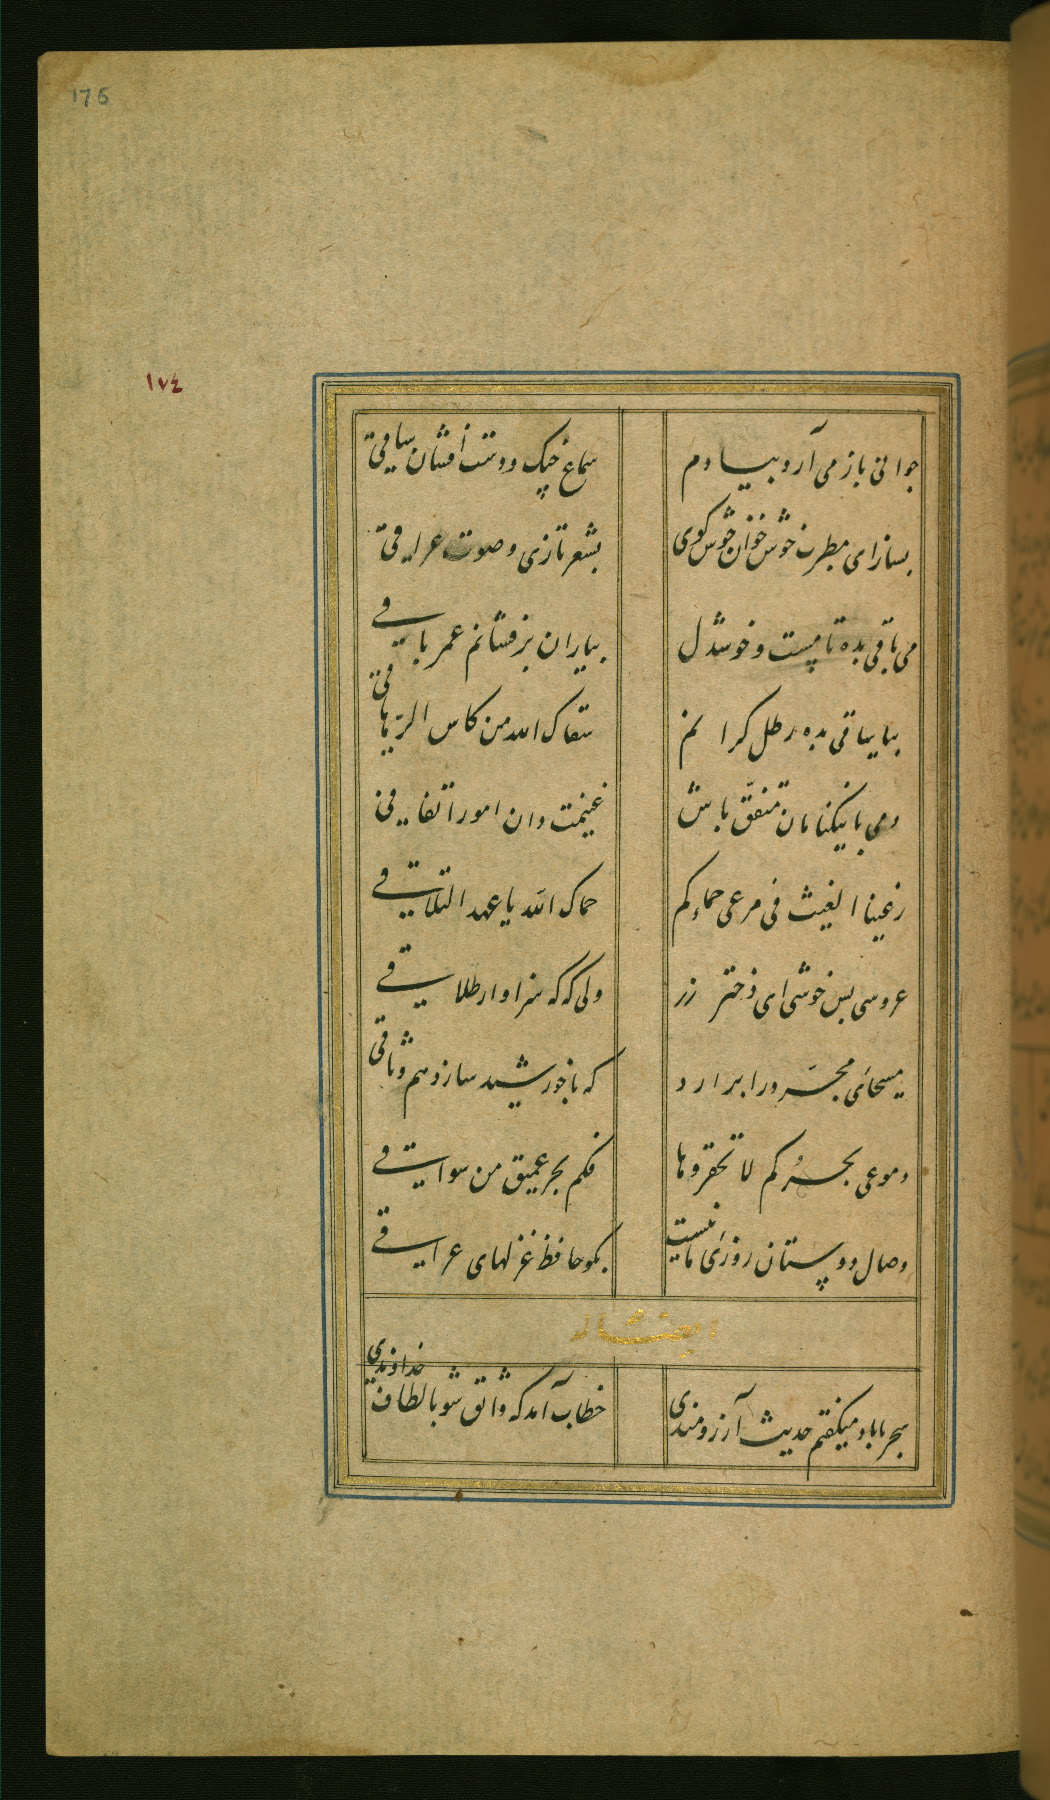 175
١٧٤
جوانی باز می آرد بیادم سماع چنگ و دست افشان ساقی
بساز ای مطرب خوش خوان خوش کوی بشعر تازی و صوت عراقی
می باقی بده تا مست و خوشدل بیاران بر فشانم عمر باقی
بیا ساقی بده رطل کرانم سقاک الله من کاس الدهاقی
دمی با نیکنامان متفق باش غنیمت دان امور اتفاقی
ربیعنا الغیث فی مرعی حماءکم حماک الله یا عهد التلاقی
عروسی بس خوشی ای دختر رز ولی که که سزاوار طلاقی
مسیحائی مجرد را برارد که با خورشید سازد هم وثاقی
دموعی بحرکم لا تحقروها فکم بحر عمیق من سواقی
وصال دوستان روزی ما نیست بکو حافظ غزلهای عراقی
ایضا له
سحر با باد میکفتم حدیث آرزومندی خطاب آمد که واثق شو بالطاف خداوندی